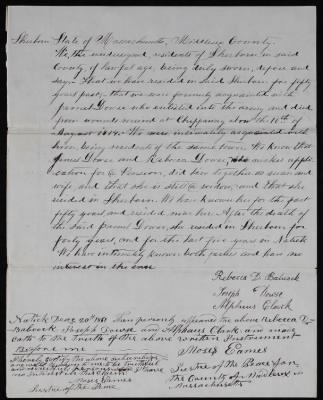 Sherborn State of Massachusetts, Middlesex County.
We, the undersigned, residents of Sherborn in said
County of lawful age, being duly sworn, depose and
say. That we have resided in said Sherborn for fifty
years past, that we were formerly acquainted with
Dowse who enlisted into the army and died
from wounds received at Chippaway about the 10th of
August 1814. We were intimately acquainted with
him, being residents of the same town. We know that
James Dowse and Rebecca Dowse, who makes appli-
cation for a Pension, did live together as man and
wife, and that she is still a widow, and that she
resided in Sherborn. We have known her for the past
fifty years and resided near her. After the death of
the said Dowse, she resided in Sherborn for
forty years, and for the last five years in Natick
We have intimately known both parties and have no
interest in the case
Rebecca D. Babcock
Joseph Dowse
Alpheus Clark
Natick 20th Then personally appeared the above Rebecca D.
Babcock Joseph Dowse and Alpheus Clark and made
oath to the truth of the above written Instrument
Before me
Moses Eames
Justice of the Peace for
the County of Middlesex in
Massachusetts
I hereby certify the above
and I have
no interest in the claim
Moses Eames
Justice of the Peace